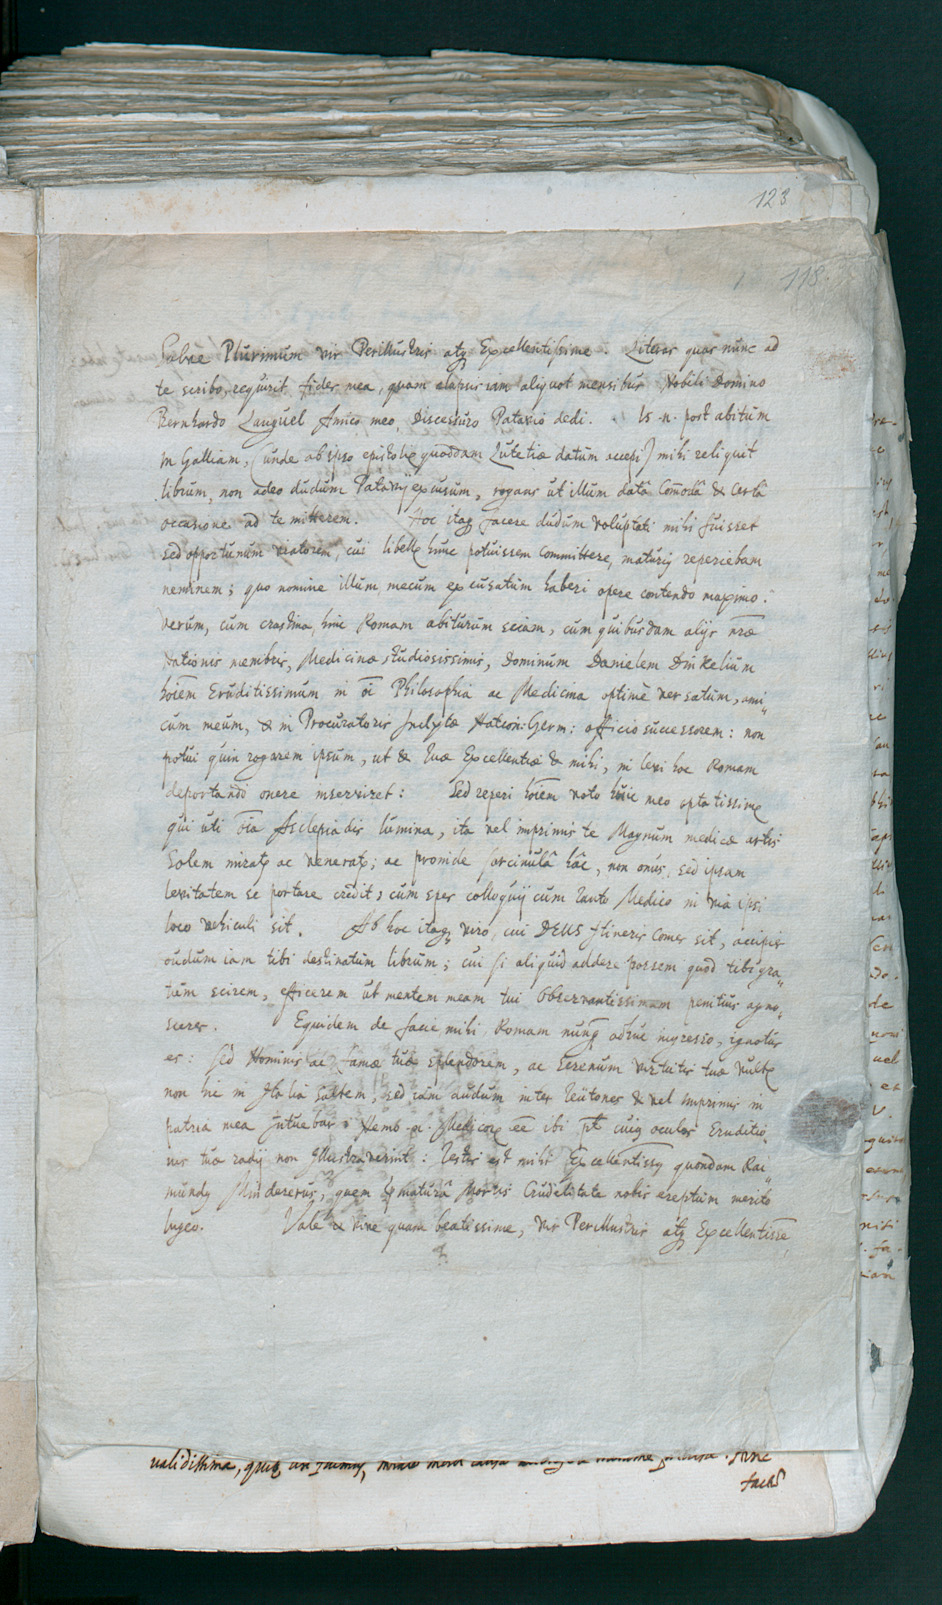 123
118.
Salve Plurimum vir Perillustris atq Excellentissime. Literas quas nunc ad
te scribo, requirit fides mea, quam elapsis iam aliquot mensibus Nobili Domino
Bernhardo Languel Amico meo, Discessuro Patavio dedi. Is .n. post abitum
in Galliam, (unde ab ipso epistolã quoddam Lutetiæ datum accepi) mihi reliquit
librum, non adeo dudum Patavij excusum, rogans ut illum datâ Com̃odâ & Certâ
occasione ad te mitterem. Hoc itaq facere dudum voluptati mihi fuisset
sed opportunum viatorem, cui libellũ hunc potuissem committere, maturiq reperiebam
neminem; quo nomine illum mecum excusatum haberi opere contendo maximo.
Verum, cum crastina, hinc Romam abiturum sciam, cum quibusdam alijs nr̃æ
Nationis membris, Medicinæ studiosissimis, Dominum Danielem Dinkelium
hoĩem Eruditissimum in oĩ Philosophia ac Medicina optimè versatum, ami
cum meum, & in Procuratoris Inclytæ Nation: Germ: officio successorem: non
potui quin rogarem ipsum, ut & Tuæ Excellentiæ & mihi, in levi hoc Romam
deportando onere inserviret: Sed reperi hoĩem voto huic meo optatissimũ
qui uti oĩa Asclepiadis lumina, ita vel imprimis te Magnum medicæ artis
Solem mirat ac venerat; ac proinde sarcinulâ hâc, non onus, sed ipsam
levitatem se portare credit, cum spes colloquij cum tanto Medico in via ipsi
loco vehiculi sit. Ab hoc itaq viro, cui DEUS Itineris comes sit, accipies
dudum iam tibi destinatum librum; cui si aliquid addere possem quod tibi gra
tum scirem, efficerem ut mentem meam tui Observantissimam penitius agno
sceres. Equidem de facie mihi Romam nunq adhuc ingresso, ignotus
es: Sed Nominis ac famæ tuæ splendorem, ac serenum virtutis tuæ vultũ
non hic in Italia saltem, sed iam dudum inter Teutones & vel imprimis in
patria mea intuebar: Nemo .n. Medicorũ eẽ ibi põt cuiq oculos Eruditio
nis tuæ radij non Illustraverint: Testis est mihi Excellentissq quondam Rai
mundq Mindererus, quem præmaturâ Mortis Crudelitate nobis ereptum merito
lugeo. Vale & vive quam beatissime, vir Perillustris atq Excellentissẽ
validissima,
tactũ